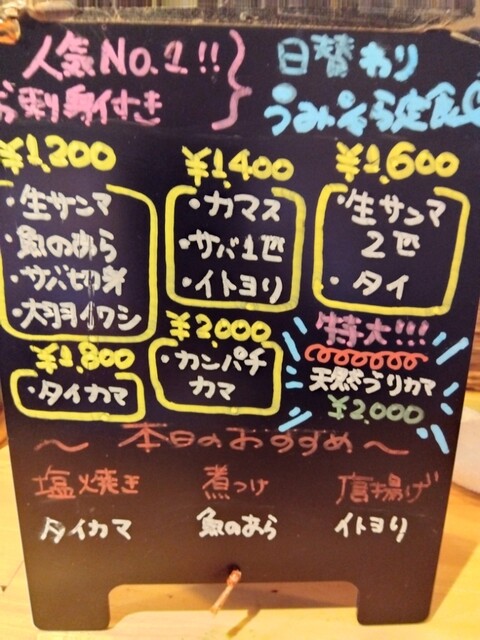 人気No.1!!
お刺身付き
日替わり
うみそら定食
¥1,200
・生サンマ
・魚のあら
・サバ切身
・大羽イワシ
¥1,400
・カマス
・サバ1匹
・イトヨリ
¥1,600
・生サンマ
2匹
・タイ
¥1,800
・タイカマ
¥2,000
・カンパチ
カマ
特大!!!
天然ブリカマ
¥2,000
～本日のおすすめ～
塩焼き
タイカマ
煮つけ
魚のあら
唐揚げ
イトヨリ